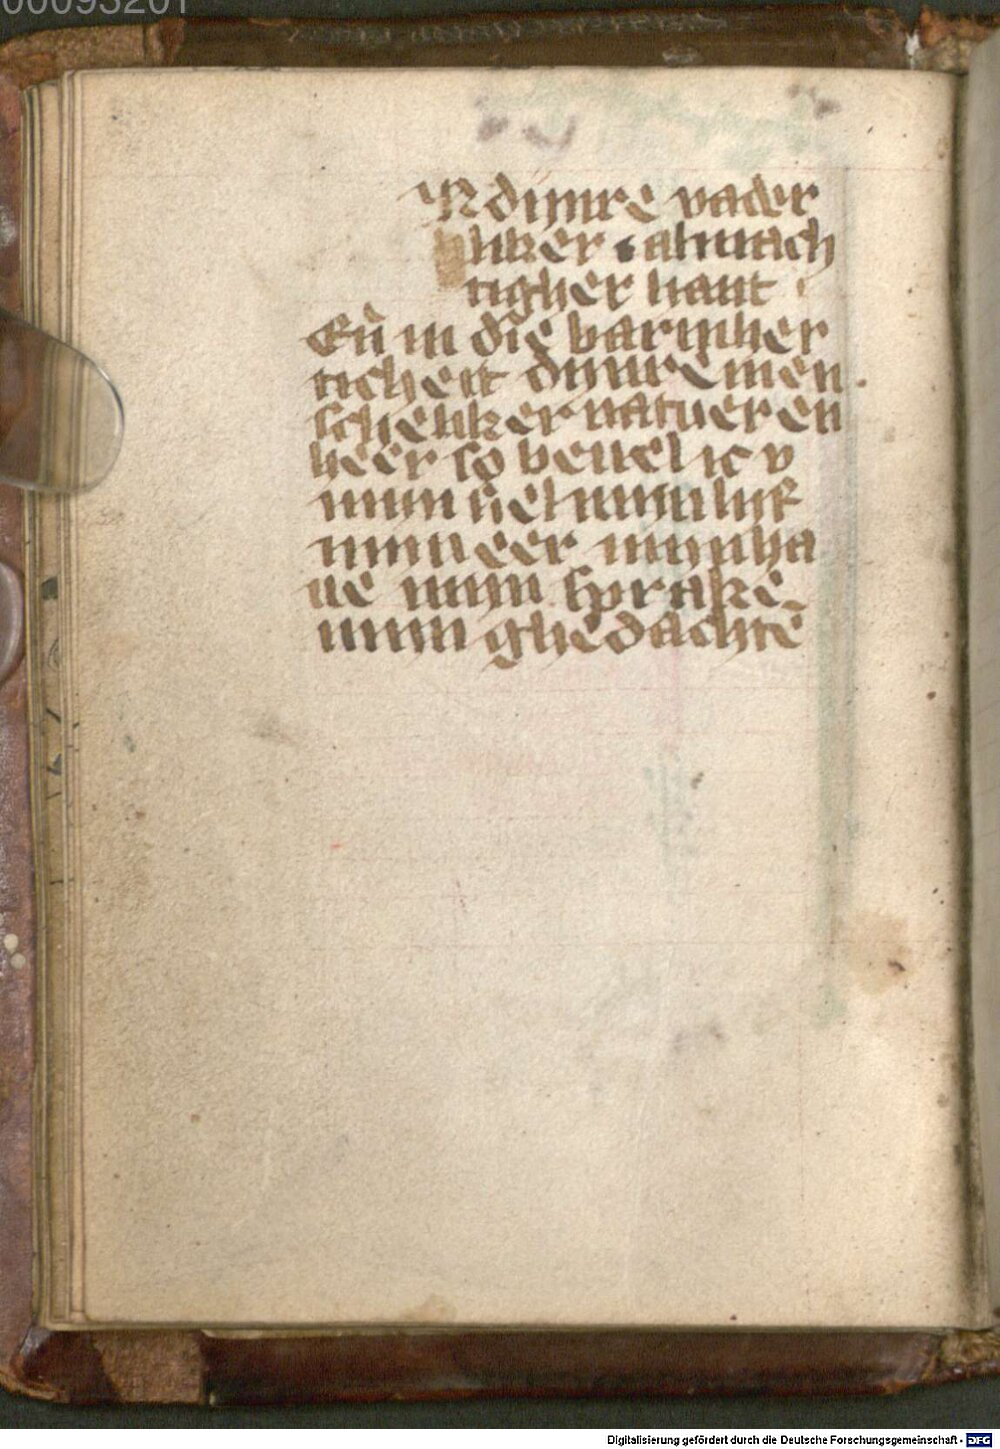 00093201
N dijnre vader
liker almach
tigher hant
Eñ in die barmher
ticheit dijnre men
scheliker natueren
heer so beueel ic v
mijn siel mijn lijf
mijn eer mijn ha
ue mijn sprake
mijn ghedachtē
Digitalisierung gefördert durch die Deutsche Forschungsgemeinschaft - DFG